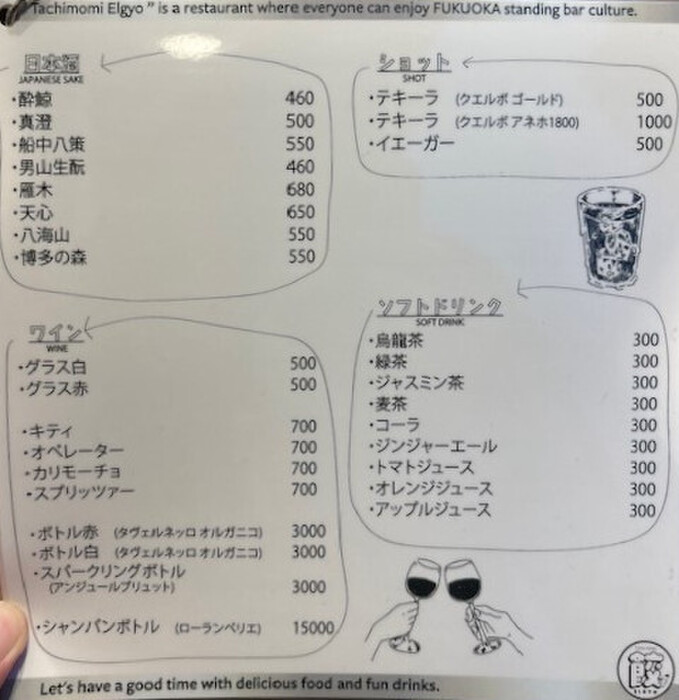 Tachimomi Elgyo " is a restaurant where everyone can enjoy FUKUOKA standing bar culture.
日本酒
JAPANESE SAKE
・酔鯨 460
・真澄 500
・船中八策 550
・男山生酛 460
・雁木 680
・天心 650
・八海山 550
・博多の森 550
ワイン
WINE
・グラス白 500
・グラス赤 500
・キティ 700
・オペレーター 700
・カリモーチョ 700
・スプリッツァー 700
・ボトル赤 (タヴェルネッロ オルガニコ) 3000
・ボトル白 (タヴェルネッロ オルガニコ) 3000
・スパークリングボトル
(アンジュールブリュット) 3000
・シャンパンボトル (ローランペリエ) 15000
ショット
SHOT
・テキーラ (クエルボ ゴールド) 500
・テキーラ (クエルボ アネホ1800) 1000
・イエーガー 500
ソフトドリンク
SOFT DRINK
・烏龍茶 300
・緑茶 300
・ジャスミン茶 300
・麦茶 300
・コーラ 300
・ジンジャーエール 300
・トマトジュース 300
・オレンジジュース 300
・アップルジュース 300
Let's have a good time with delicious food and fun drinks.